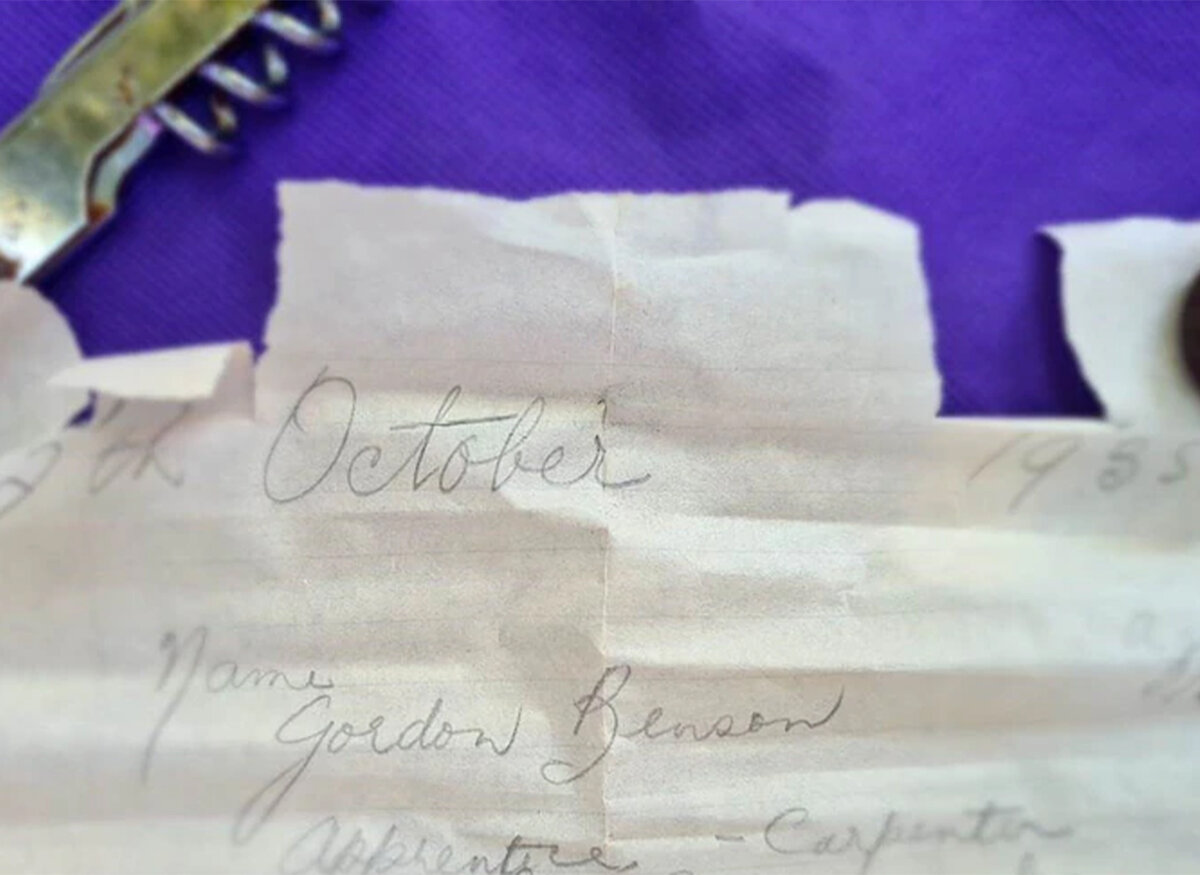 th October
Name
Gordon Benson
Apprentice - Carpenter